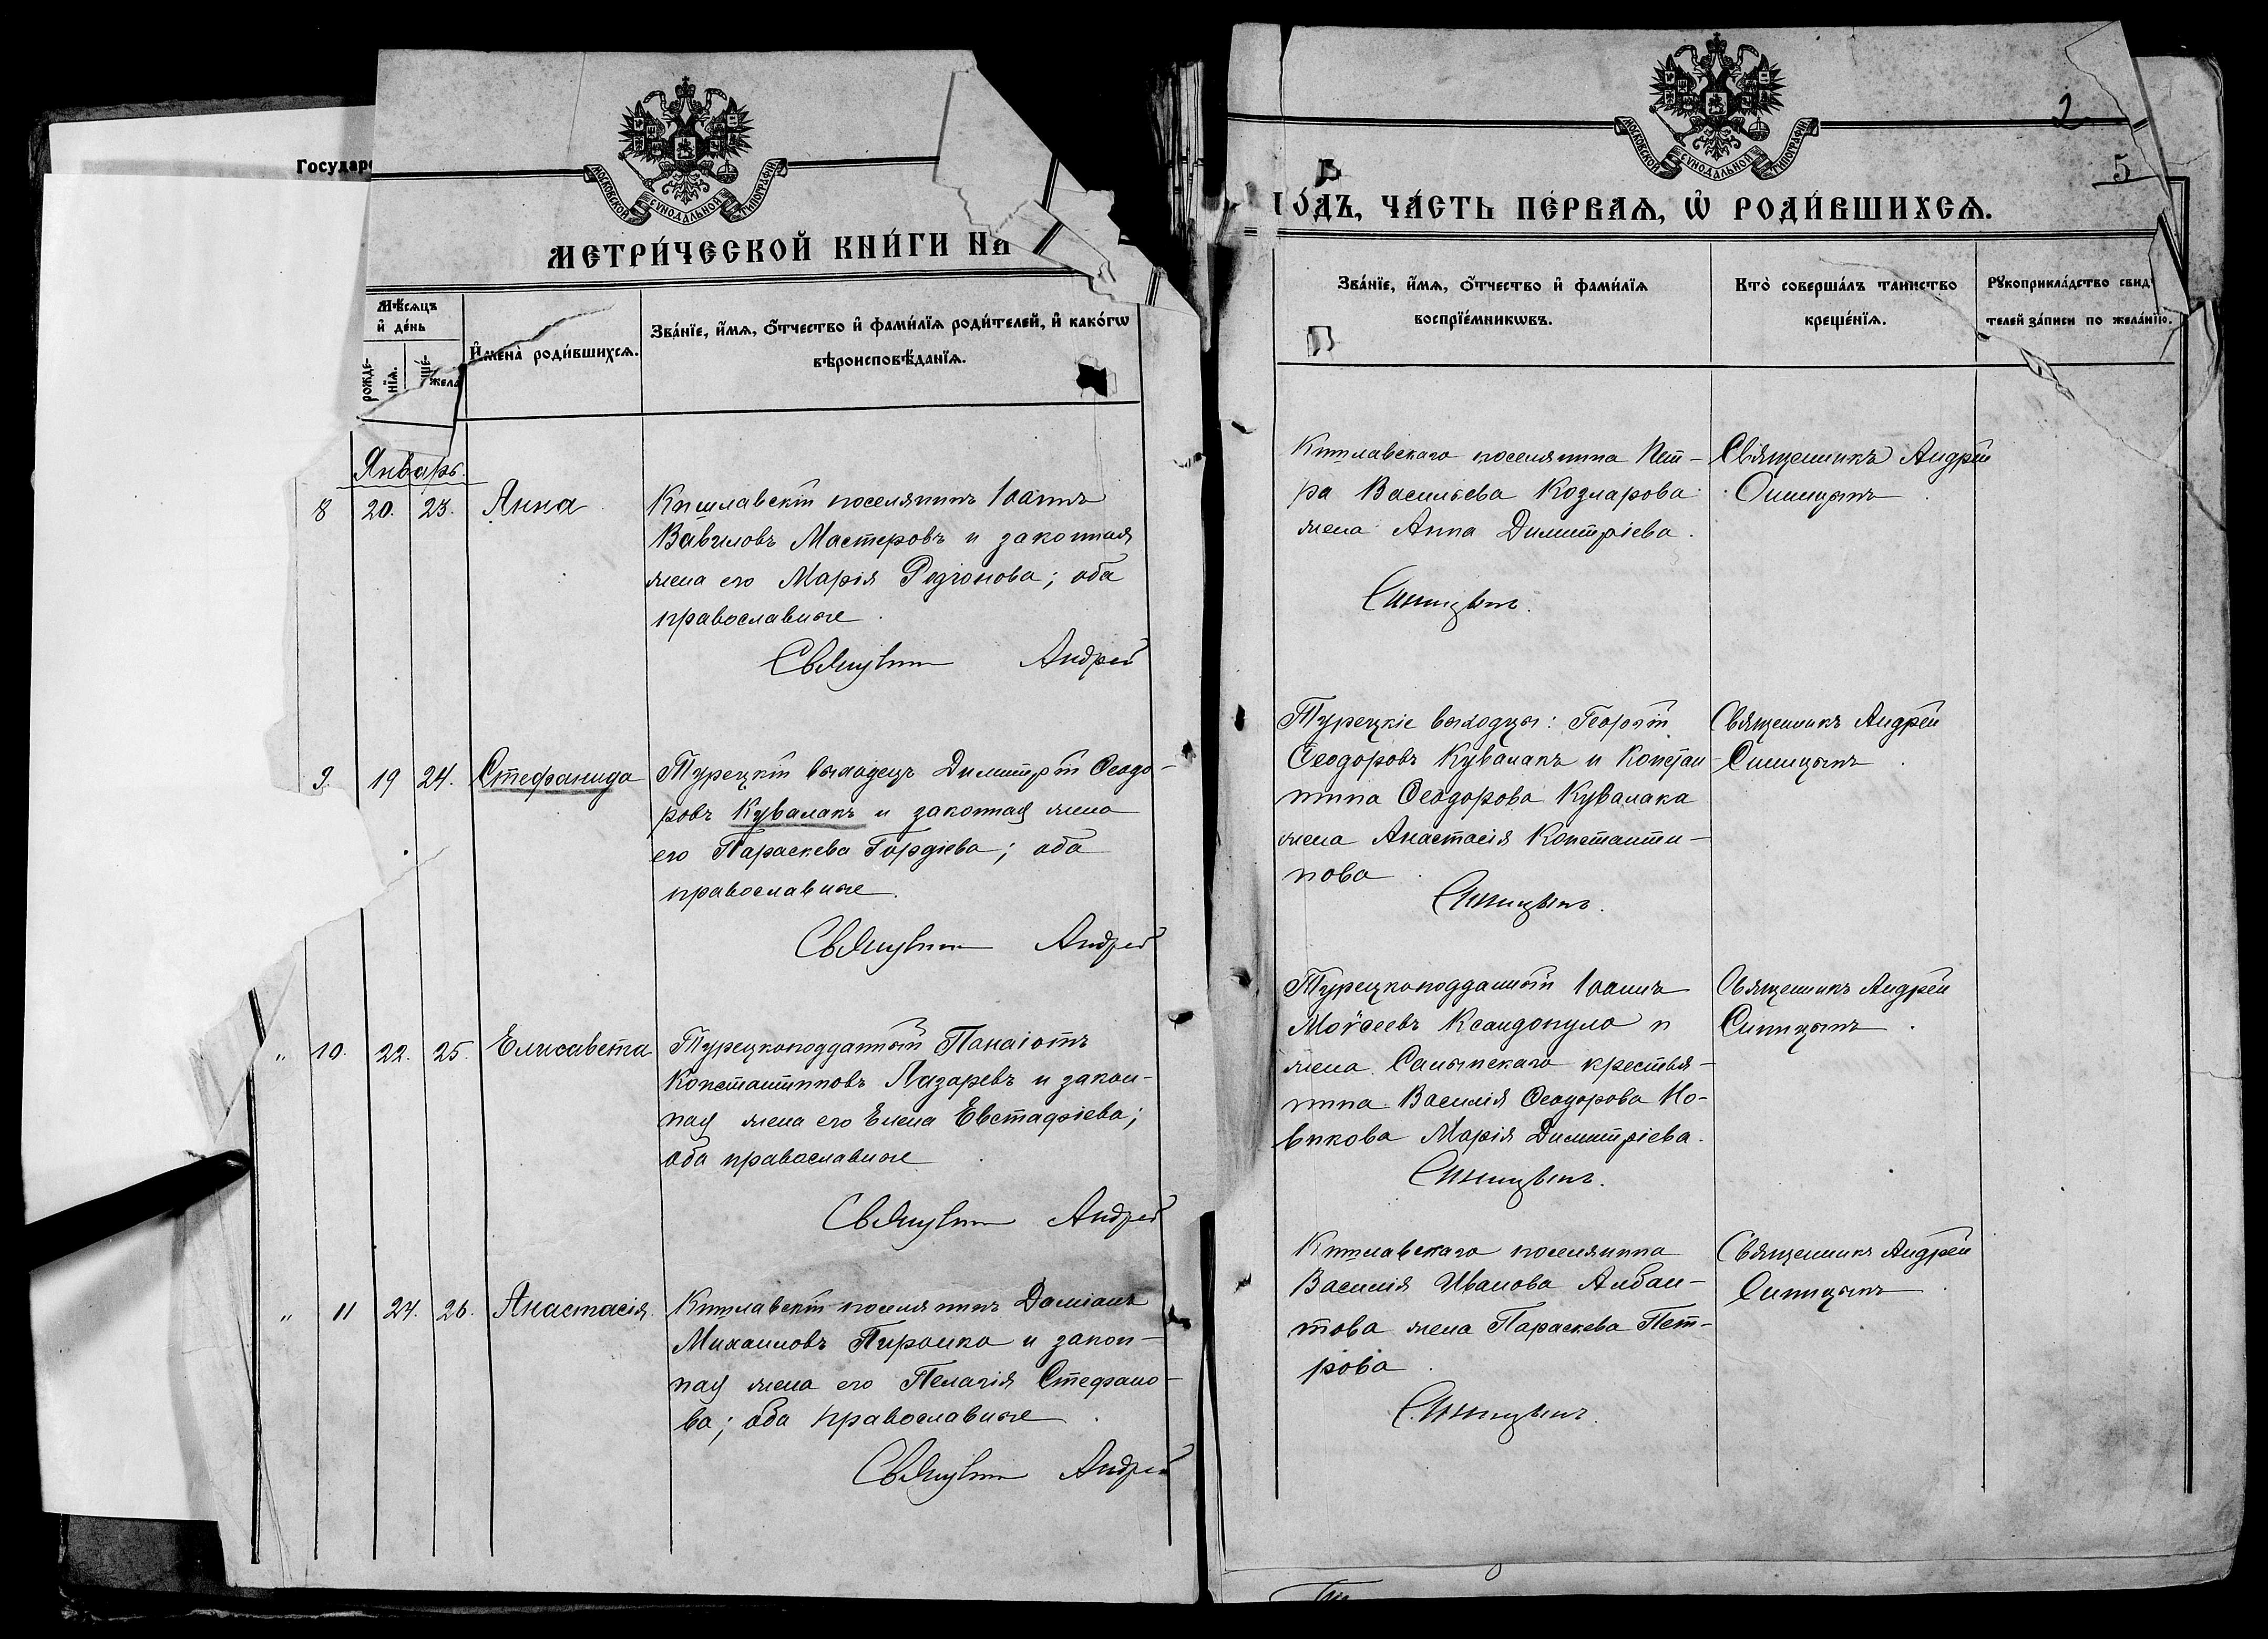 Государ
МОСКОВСКОЙ СѴНОДАЛЬНОЙ ТИПОГРАФІИ
МЕТРИ́ЧЕСКОЙ КНИ́ГИ НА
Мѣ́сяцъ
и҆ де́нь
рожде-
нїя.
И҆мена̀ роди́вшихсѧ.
Зва́нїе, и҆́мѧ, ѻ҆́тчество и҆ фами́лїѧ роди́телей, и҆ како́гѡ
вѣроисповѣ́данїѧ.
Январь.
8 20. 23. Анна
Кишлавскій поселянинъ Іоаннъ
Вавиловъ Мастеровъ и законная
жена его Марія Родіонова; оба
православные.
Священникъ Андрей
9. 19 24. Стефанида
Турецкій выходецъ Димитрій Ѳеодо-
ровъ Кувалакъ и законная жена
его Параскева Гордіева; оба
православные.
Священникъ Андрей
" 10. 22. 25. Елисавета
Турецкоподданный Панаіотъ
Константиновъ Лазаревъ и закон-
ная жена его Елена Евстафіева;
оба православные
Священникъ Андрей
" 11 24. 26. Анастасія.
Кишлавскій поселянинъ Даміанъ
Михаиловъ Пиронко и закон-
ная жена его Пелагія Стефано-
ва; оба православные.
Священникъ Андрей
2
5
МОСКОВСКОЙ СѴНОДАЛЬНОЙ ТИПОГРАФІИ
ГО́ДЪ, ЧА́СТЬ ПЕ́РВАѦ, Ѡ҆ РОДИ́ВШИХСѦ.
Зва́нїе, и҆́мѧ, ѻ҆́тчество и҆ фами́лїѧ
воспрїе́мникѡвъ.
Кто̀ соверша́лъ таинство
креще́нїѧ.
Рꙋкоприкла́дство свид
телей за́писи по жела́нїю.
Кишлавскаго поселянина Пет-
ра Васильева Козларова
жена Анна Димитріева.
Синицынъ.
Священникъ Андрей
Синицынъ.
Турецкіе выходцы: Георгій
Ѳеодоровъ Кувалакъ и Констан-
тина Ѳеодорова Кувалака
жена Анастасія Константи-
нова.
Синицынъ.
Священникъ Андрей
Синицынъ.
Турецкоподданный Іоаннъ
Моѵсеевъ Ксандопуло и
жена Салынскаго крестья-
нина Василія Ѳеодорова Но-
викова Марія Димитріева.
Синицынъ.
Священникъ Андрей
Синицынъ.
Кишлавскаго поселянина
Василія Иванова Албан-
това жена Параскева Пет-
рова.
Синицынъ.
Священникъ Андрей
Синицынъ.